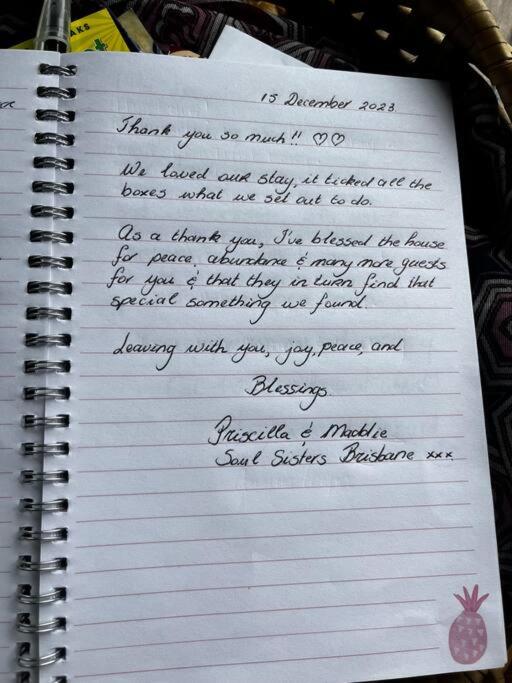 AKS
15 December 2023
Thank you so much!! ♡♡
We loved our stay, it ticked all the
boxes what we set out to do.
As a thank you, I've blessed the house
for peace, abundance & many more guests
for you & that they in turn find that
special something we found.
Leaving with you, joy, peace, and
Blessings
Priscilla & Maddie
Soul Sisters Brisbane xxx